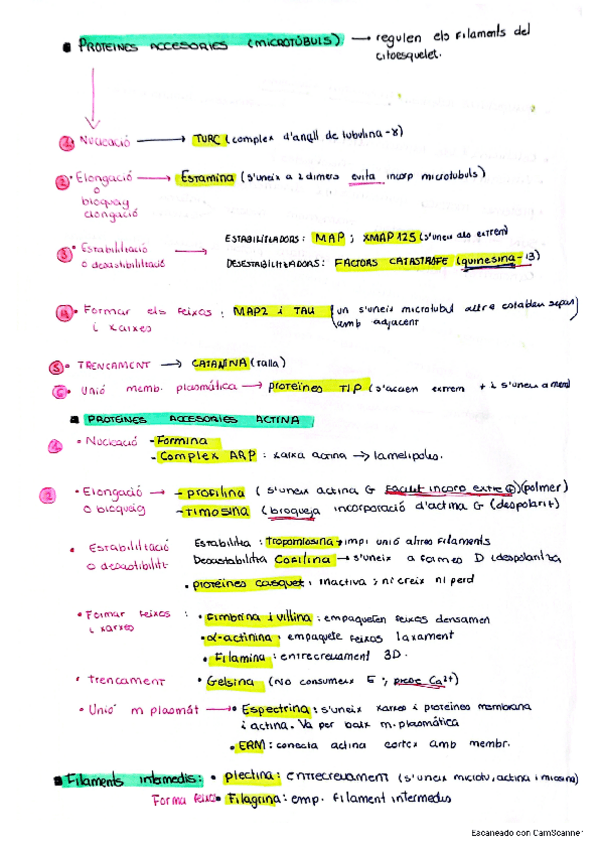 PROTEÏNES ACCESORIES (MICROTÚBULS) → regulen els filaments del
citoesquelet.
1 Nucleació → TURC (complex d'anell de tubulina-γ)
2 Elongació → Estamina (s'uneix a 2 dimers evita incorp microtubuls)
o
bloqueig
elongació
3 Estabilització ESTABILITZADORS: MAP ; XMAP 125 (s'uneix als extrem)
o desestabilització → DESESTABILITZADORS: FACTORS CATASTROFE (quinesina-13)
4 Formar els feixos : MAP2 i TAU (un s'uneix microtubul altre estableix separ
i xarxes amb adjacent)
5 TRENCAMENT → CATANINA (talla)
6 Unió memb. plasmática → proteïnes TIP (s'acuen extrem + i s'uneix a memb)
PROTEÏNES ACCESORIES ACTINA
1 Nucleació - Formina
- Complex ARP : xarxa actina → lamelipodis.
2 Elongació → - profilina (s'uneix actina G facilit incorp extre ⊕)(polimer)
o bloqueig - Timosina (bloqueja incorporació d'actina G (despolarit)
Estabilització Estabilitza: tropomiosina → impi unió altres filaments
o desestibilitz Desestabilitza Cofilina → s'uneix a formes D (despolaritza
proteïnes casquet : inactiva ; ni creix ni perd
Formar feixos : Fimbrina i villina : empaqueten feixos densamen
i xarxes α-actinina : empaquete feixos laxament
Filamina : entrecreuament 3D.
trencament Gelsina (no consumeix E ; Ca²⁺)
Unió m plasmát → Espectrina : s'uneix xarxes i proteïnes membrana
i actina. Va per baix m. plasmática
ERM : conecta actina cortex amb membr.
Filaments intermedis: plectina : entrecreuament (s'uneix microtu, actina i miosina)
Forma feixos Filagrina : emp. filament intermedis
Escaneado con CamScanner